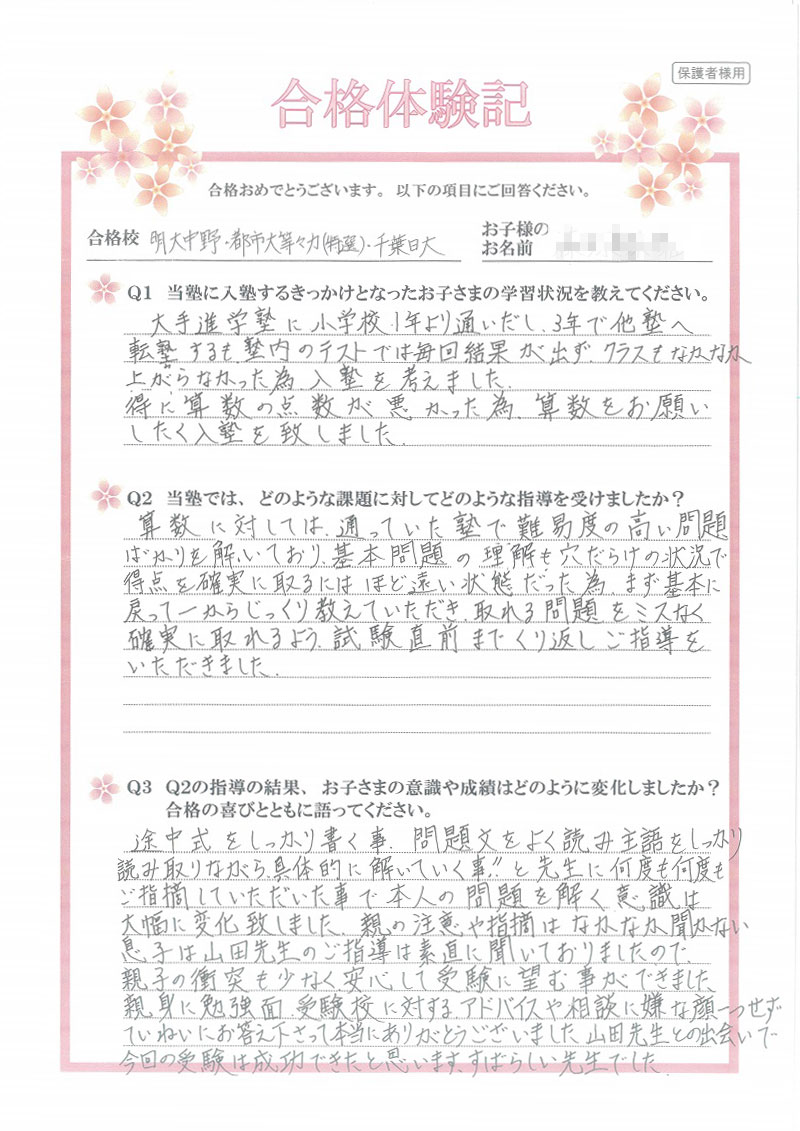 保護者様用
合格体験記
合格おめでとうございます。以下の項目にご回答ください。
合格校 明大中野・都市大等々力(特選)・千葉日大
お子様の
お名前
Q1 当塾に入塾するきっかけとなったお子さまの学習状況を教えてください。
大手進学塾に小学校1年より通いだし、3年で他塾へ
転塾するも、塾内のテストでは毎回結果が出ず、クラスもなかなか
上がらなかった為、入塾を考えました。
得に算数の点数が悪かった為、算数をお願い
したく入塾を致しました。
Q2 当塾では、どのような課題に対してどのような指導を受けましたか?
算数に対しては、通っていた塾で難易度の高い問題
ばかりを解いており、基本問題の理解も穴だらけの状況で
得点を確実に取るにはほど遠い状態だった為、まず基本に
戻って一からじっくり教えていただき、取れる問題をミスなく
確実に取れるよう、試験直前までくり返しご指導を
いただきました。
Q3 Q2の指導の結果、お子さまの意識や成績はどのように変化しましたか?
合格の喜びとともに語ってください。
途中式をしっかり書く事 問題文をよく読み主語をしっかり
読み取りながら、具体的に解いていく事!!と先生に何度も何度も
ご指摘していただいた事で本人の問題を解く意識は
大幅に変化致しました。親の注意や指摘はなかなか聞かない
息子は山田先生のご指導は素直に聞いておりましたので、
親子の衝突も少なく安心して受験に望む事ができました
親身に勉強面、受験校に対する、アドバイスや相談に嫌な顔一つせず
ていねいにお答え下さって本当にありがとうございました。山田先生との出会いで
今回の受験は成功できたと思います。すばらしい先生でした。